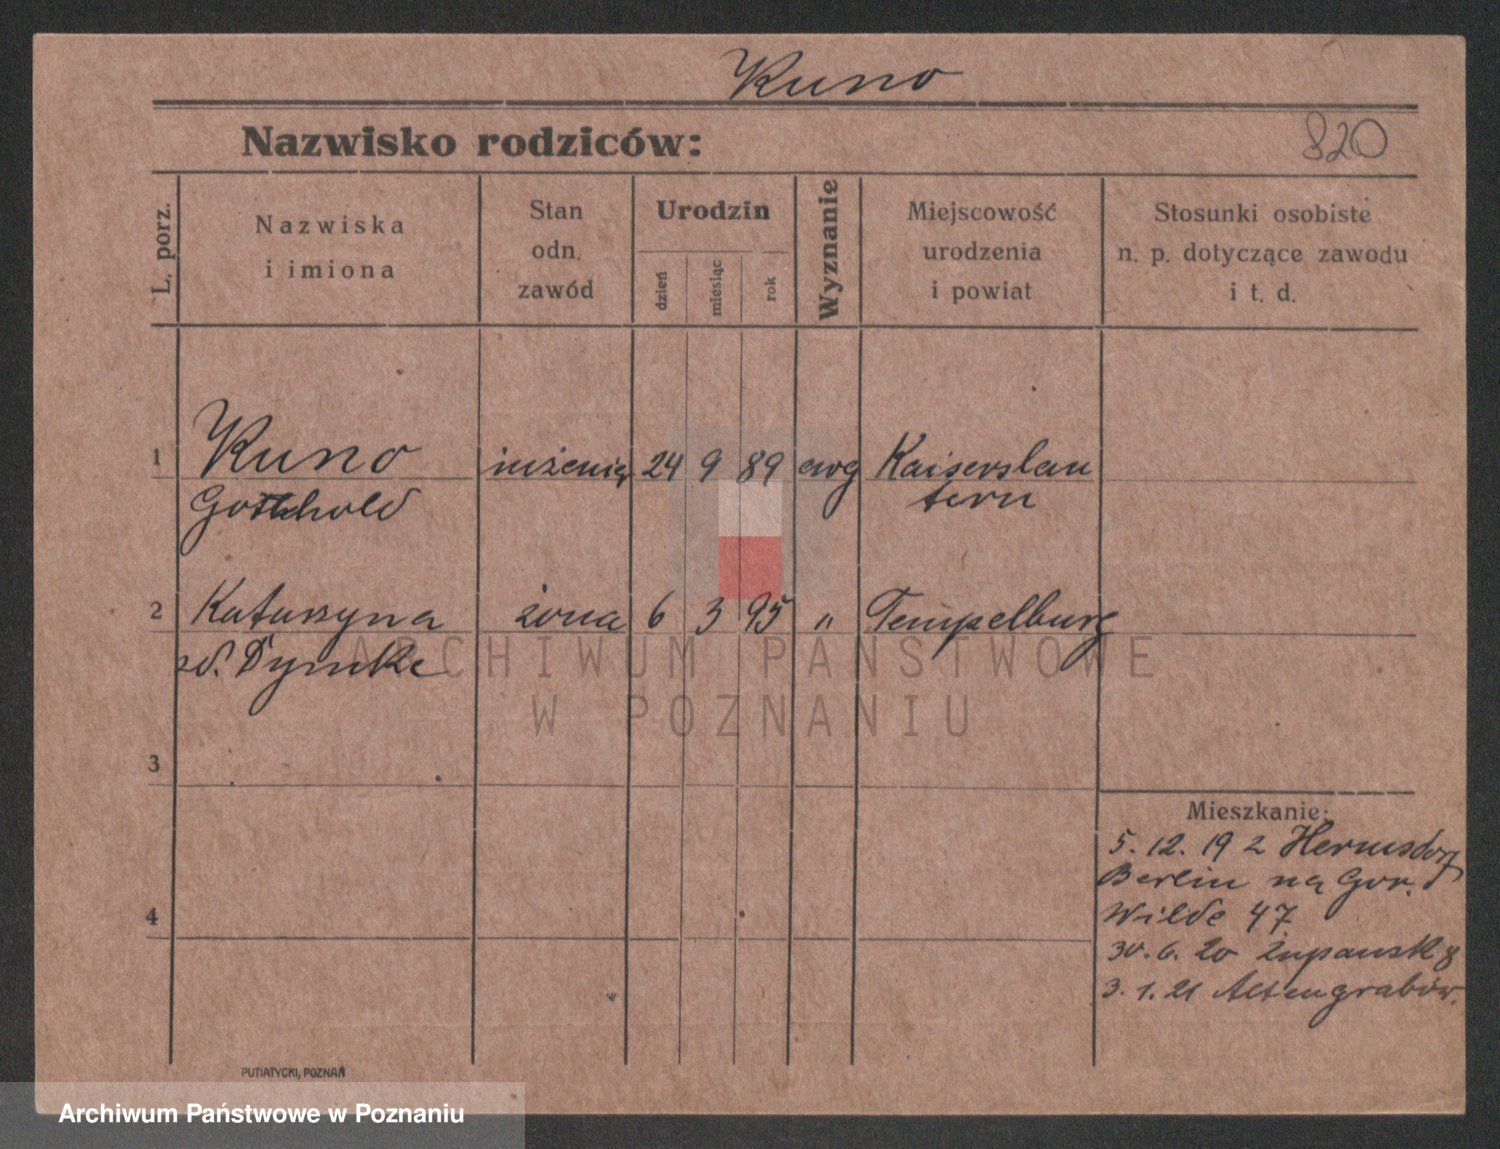 Kuno
Nazwisko rodziców:
820
L. porz.
Nazwiska
i imiona
Stan
odn.
zawód
Urodzin
dzień
miesiąc
rok
Wyznanie
Miejscowość
urodzenia
i powiat
Stosunki osobiste
n. p. dotyczące zawodu
i t. d.
1 Kuno inżenier 24 9 89 ewg Kaiserslau
Gotthold tern
2 Katarszyna żona 6 3 95 " Tempelburg
zd. Dymke
ARCHIWUM PAŃSTWOWE
W POZNANIU
3
Mieszkanie:
5. 12. 19 z Hermsdorf
Berlin na Gor.
Wilde 47
4
30. 6. 20 Żupansk 8
3. 1. 21 Altengrabów.
PUTIATYCKI, POZNAŃ
Archiwum Państwowe w Poznaniu